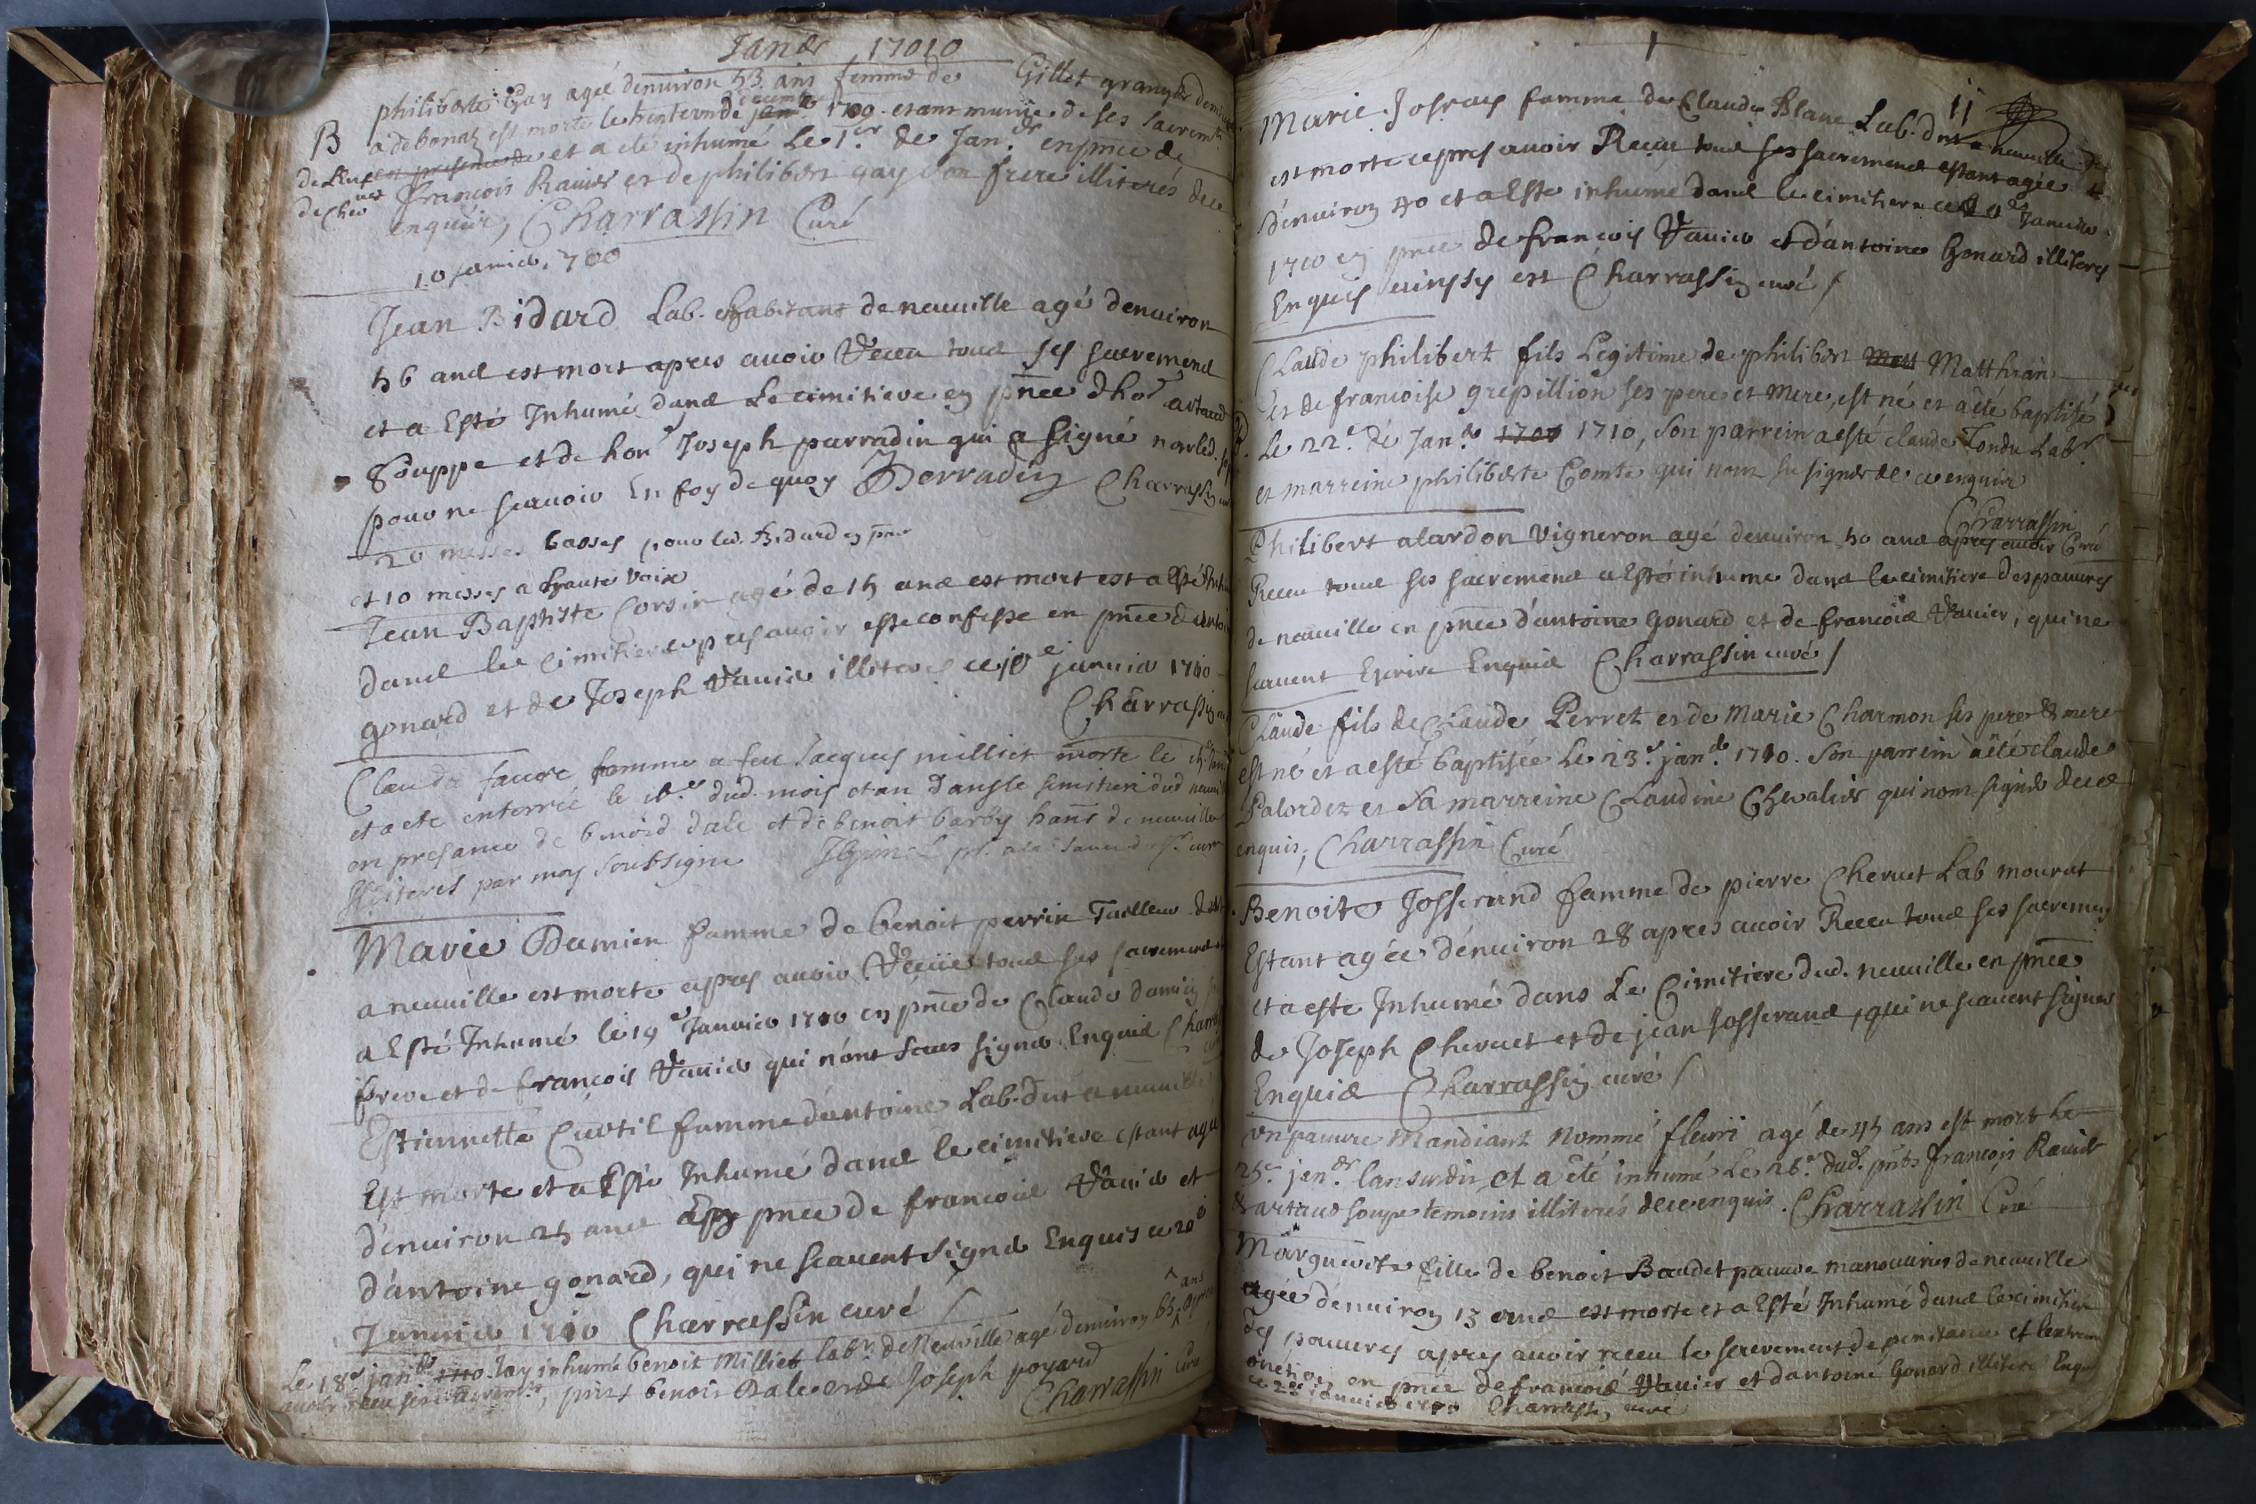 Janer 17010
philiberte Gay agée denuiron 53 ans femme de Gillet granger
B a debonaz est morte le trenteun de decembre 1709 etant munije de ses sacremts
et a eté inhumé Le 1er. de Janr. en pnce de
francois Rauier et de philibert gay son frere illiterés dece
enquis, Charrassin Curé
10 januier, 700
Jean Bidard Lab. habitant de neuuille agé denuiron
56 ans est mort apres auoir Receu tous ses sacremens
et a Esté Inhumé dans Le cimitiere en pnce dhor artaud
Souppe et de honr Joseph parradin qui a signé non led.
pour ne scauoir En foy de quoy Perradin Charrassin
20 messes basses pour led. Bidard en pnce
et 10 messes a haute voix
Jean Baptiste Corsin agé de 15 ans est mort est a Esté
dans le cimitiere apres auoir esté confesse en pnce
gonard et de Joseph Rauier illiteres ce januier 1710
Charrassin
Clauda faure femme a feu Jacques milliet morte le
et a ete enterrée le dud. mois et an dans le simitieri dud
en presance de benoid dale et de benoit barby hans de neuuille
Illiteres par moy soubsigne
Marie Damien famme de benoit perrin Tailleur
a neuuille est morte apres auoir Receüe tous ses sacremens
a Esté Inhumé le 19e Januier 1710 en pnce de Claude damien
frere et de francois Rauier qui n'ont sceus signer Enquis
Estiennette Curtil famme d'antoine Lab. dnt a neuuille
Est morte et a Esté Inhumé dans le cimitiere estant agée
d'enuiron 25 ans pnce de francois Rauier et
d'antoine gonard, qui ne scauent signer Enquis ce 20e
Januier 1710 Charrassin curé
Le 18e janer 1710 Jay inhumé benoit Milliet labr. de Neuuille agé denuiron 65 ans apres
auoir receu ses sacremts, pnts benoit Dale et de Joseph poyard
Charrassin Curé
11
Marie Josray famme de Claude Blanc Lab. dnt a neuuille
est morte apres auoir Receu tous ses sacremens estant agée
d'enuiron 40 et a Esté inhumé dans le cimitiere ce Januier
1710 en pnce de francois Rauier et d'antoine Gonard illiteres
Enquis ainsy est Charrassin curé
Claude philibert fils Legitime de philibert Matthian
et de francoise grepillion ses pere et mere, est né et a ete baptisé
Le 22e. de Janer 1700 1710, Son parrein a esté claude Tondu Labr
et marreine philiberte Comte qui nont su signer de ce enquis
Charrassin Curé
Philibert alardon vigneron agé denuiron 50 ans apres auoir
Receu tous ses sacremens a Esté inhume dans le cimitiere des pauures
de neuuille en pnce d'antoine Gonard et de francois Rauier, qui ne
scauent Escrire Enquis Charrassin curé
Claude fils de Claude Perret et de Marie Charmon ses pere & mere
est né et a esté baptisée Le 23e. janer. 1710. Son parrein a ëté claude
Palordez et sa marreine Claudine Cheualier qui nont signé de ce
enquis, Charrassin Curé
Benoite Josserand famme de pierre Cheruet Lab mourut
Estant agée d'enuiron 28 apres auoir Receu tous ses sacremens
et a esté Inhumé dans Le Cimitiere dud. neuuille en pnce
de Joseph Cheruet et de jean Josserand, qui ne scauent signer
Enquis Charrassin curé
un pauure Mandiant Nommé fleuri agé de 45 ans est mort Le
25e janer. lan susdit, et a eté inhumé Le 26e. dud. pnts francois Rauier
& artaud soupe temoins illiterés de ce enquis. Charrassin Curé
Marguerite fille de benoit Baudet pauure manouurier de neuuille
agée d'enuiron 13 ans est morte et a Esté Inhumé dans le cimitiere
des pauures apres auoir receu le sacrement de penitance et lextreme
onction en pnce de francois Rauier et d'antoine Gonard illitere Enquis
ce januier 1710 Charrassin curé